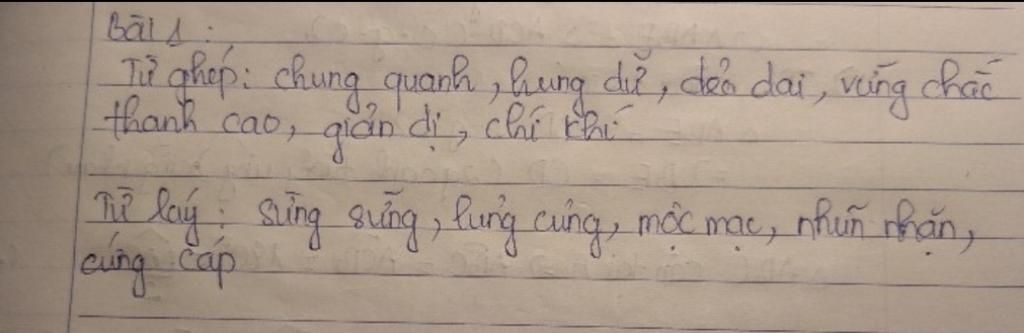 Bài 1:
Từ ghép: chung quanh, hung dữ, dẻo dai, vững chắc
thanh cao, giản dị, chí khí
Từ láy: sừng sững, lủng củng, mộc mạc, nhũn nhặn,
cứng cáp